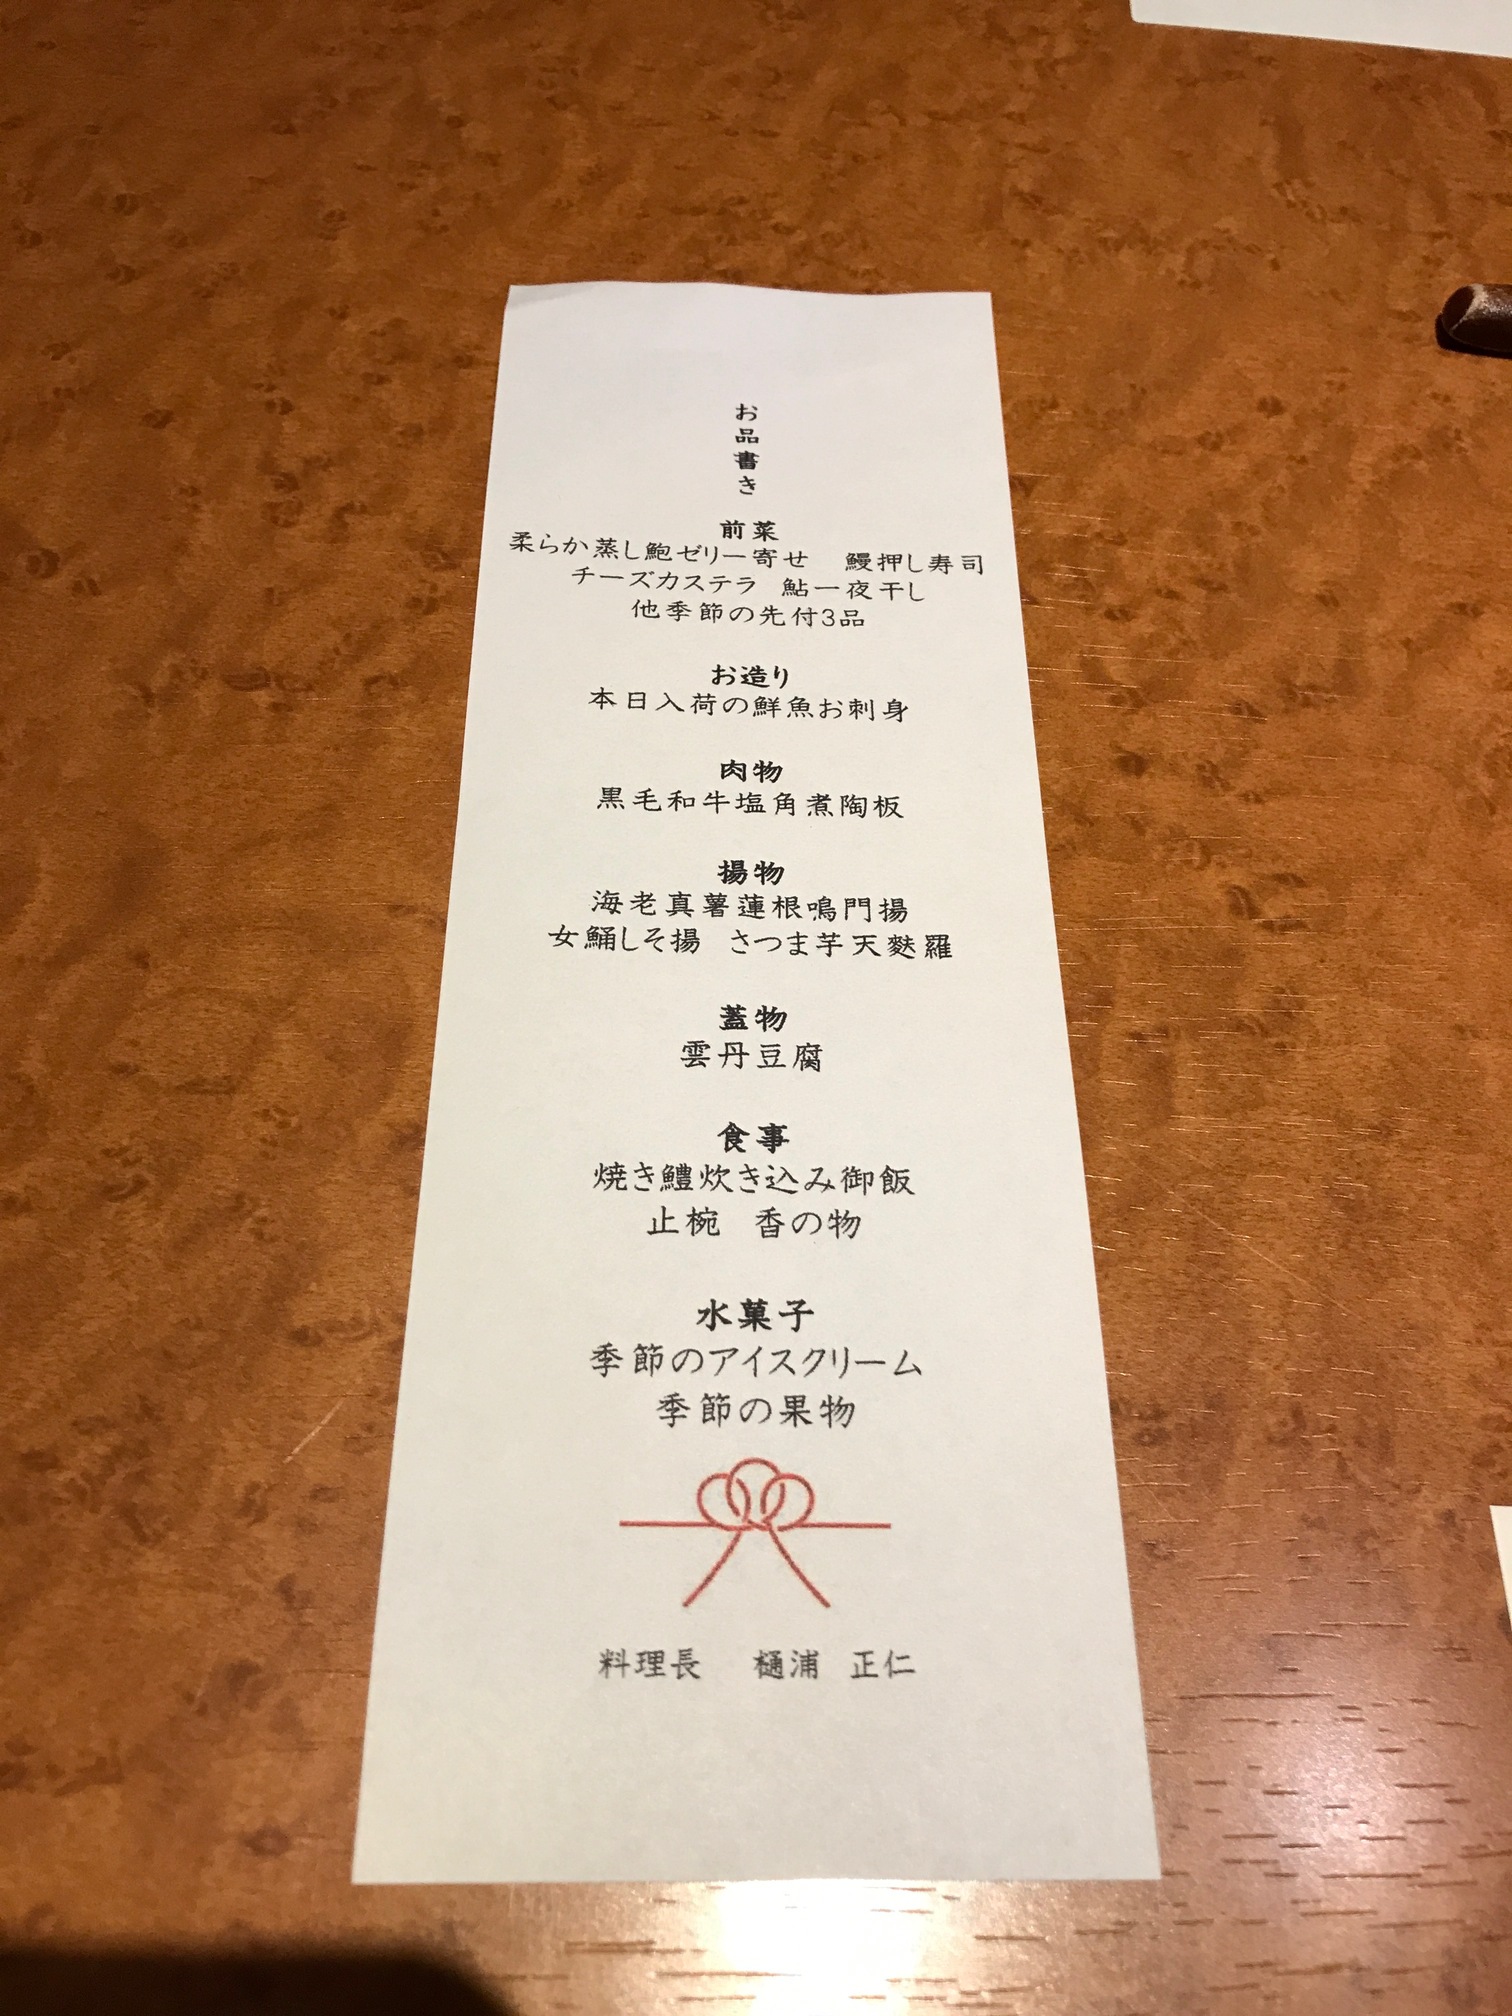 お品書き
前菜
柔らか蒸し鮑ゼリー寄せ　鰻押し寿司
チーズカステラ　鮎一夜干し
他季節の先付3品
お造り
本日入荷の鮮魚お刺身
肉物
黒毛和牛塩角煮陶板
揚物
海老真薯蓮根鳴門揚
女鯒しそ揚　さつま芋天麩羅
蓋物
雲丹豆腐
食事
焼き鱧炊き込み御飯
止椀　香の物
水菓子
季節のアイスクリーム
季節の果物
料理長　樋浦　正仁